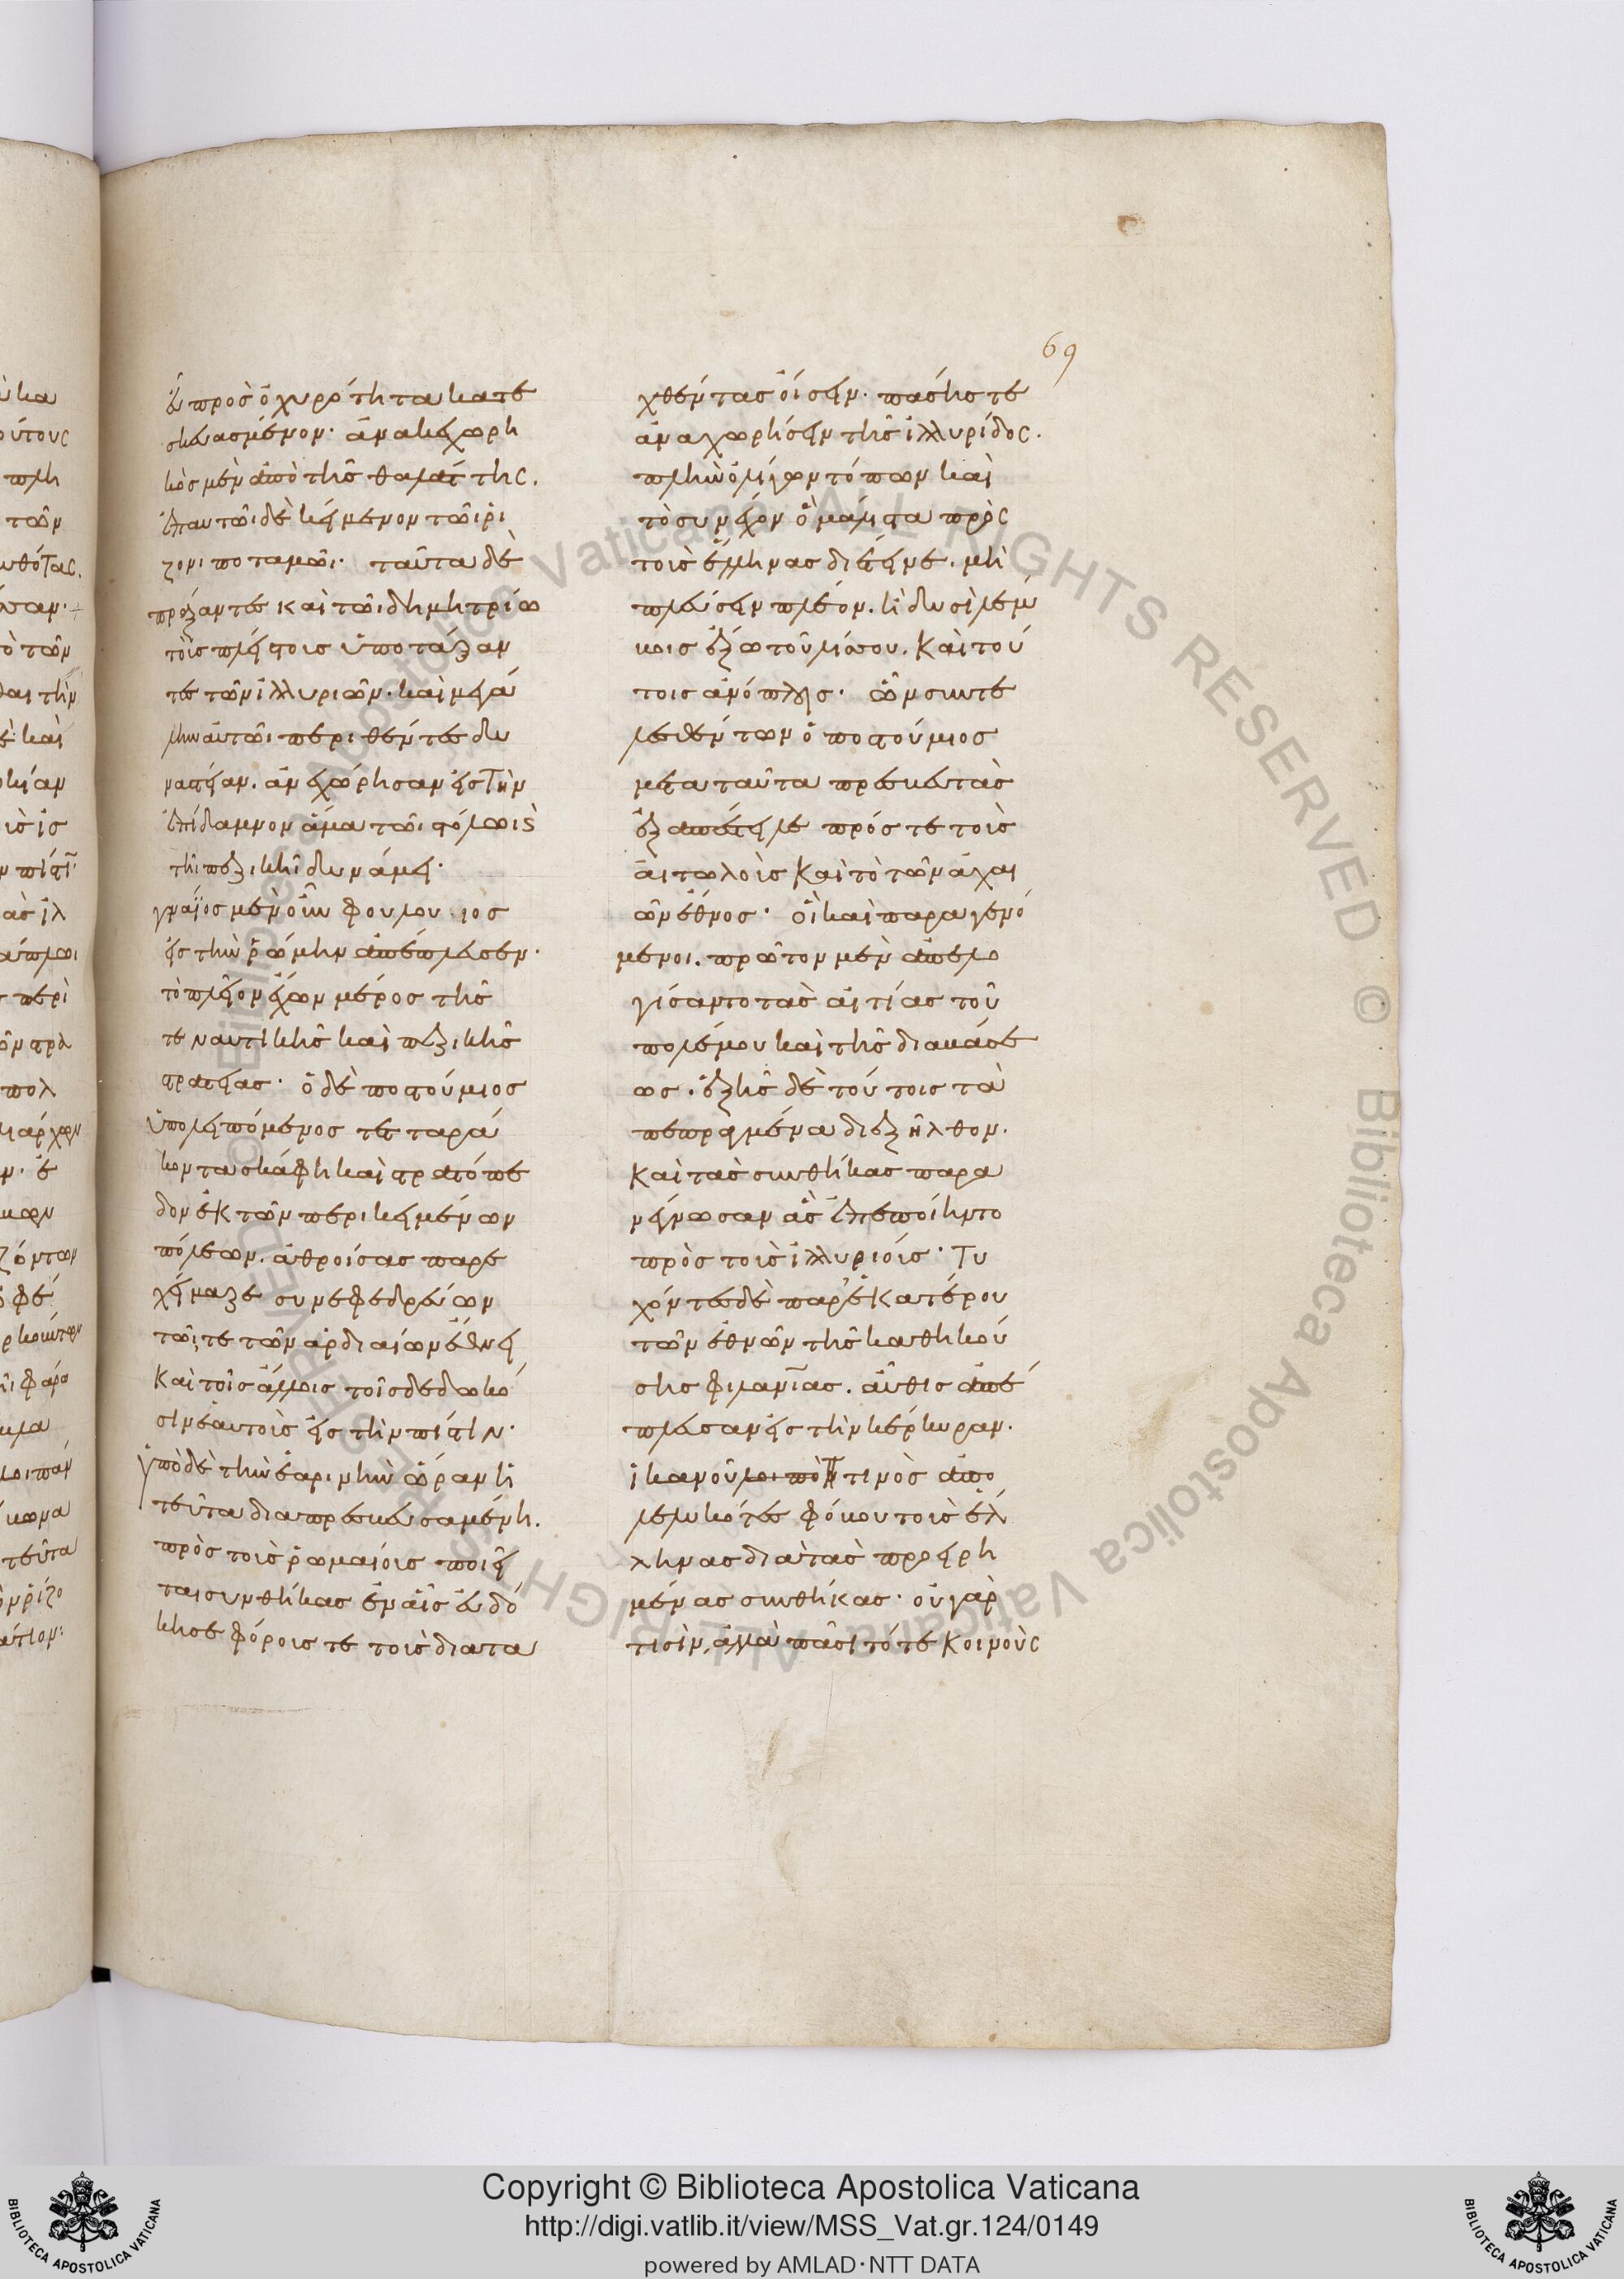 εὖ πρὸς ὀχυρότητα κατε
σκευασμένον· ἀνακεχωρη
κὸς μὲν ἀπὸ τῆς θαλάττης.
ἐπαυτῶι δὲ κείμενον τῶι ῥί
ζονι ποταμῶι· ταῦτα δὲ
πράξαντες καὶ τῶι δημητρίω
τοὺς πλείστους ὑποτάξαν
τες τῶν ἰλλυριῶν· καὶ μεγά
λην αὐτῶι περιθέντες δυ
ναστείαν. ἀνεχώρησαν εἰς τὴν
ἐπίδαμνον ἅμα τῶι στόλωι καὶ
τῆι πεζικῆι δυνάμει·
γνάϊος μὲν οὖν φουλούιος
εἰς τὴν ῥώμην ἀπέπλευσεν·
τὸ πλεῖον ἔχων μέρος τῆς
τε ναυτικῆς καὶ πεζικῆς
στρατείας· ὁ δὲ ποστούμιος
ὑπολειπόμενος τετταρά
κοντα σκάφη καὶ στρατόπε
δον ἐκ τῶν περικειμένων
πόλεων. ἀθροίσας παρε
χείμαζε συνεφεδρεύων
τῶι τε τῶν ἀρδιαίων ἔθνει
καὶ τοῖς ἄλλοις τοῖς δεδωκό
σιν ἑαυτοὺς εἰς τὴν πίστιν·
ὑπὸ δὲ τὴν ἐαρινὴν ὥραν ἡ
τεῦτα διαπρεσβευσαμένη.
πρὸς τοὺς ῥωμαίους ποιεῖ
ται συνθήκας ἐν αἷς εὐδό
κησε φόρους τε τοὺς διατα
69
χθέντας οἴσειν· πάσης τε
ἀναχωρήσειν τῆς ἰλλυρίδος.
πλὴν ὀλίγων τόπων καὶ
τὸ συνέχον ὃ μάλιστα πρὸς
τοὺς ἕλληνας διέτεινε. μὴ
πλεύσειν πλέον. ἢ δυσὶ λέμ
βοις ἔξω τοῦ λίσσου. καὶ τού
τοις ἀνόπλοις· ὧν συντε
λεσθέντων ὁ ποστούμιος
μετα ταῦτα πρεσβευτὰς
ἐξαπέστειλε πρός τε τοὺς
αἰτωλοὺς καὶ τὸ τῶν ἀχαι
ῶν ἔθνος· οἳ καὶ παραγενό
μενοι. πρῶτον μὲν ἀπελο
γίσαντο τὰς αἰτίας τοῦ
πολέμου καὶ τῆς διαβάσε
ως. ἑξῆς δὲ τούτοις τὰ
πεπραγμένα διεξῆλθον.
καὶ τὰς συνθήκας παρα
νέγνωσαν ἃς ἐπεποίηντο
πρὸς τοὺς ἰλλυριούς· τυ
χόντες δὲ παρ' ἑκατέρου
τῶν ἐθνῶν τῆς καθηκού
σης φιλανίας. αὖθις ἀπέ
πλευσαν εἰς τὴν κέρκυραν.
ἱκανοῦ λοιποῦ τινὸς ἀπο
λελυκότες φόβου τοὺς ἕλ
ληνας διὰ τὰς προειρη
μένας συνθήκας· οὐ γάρ
τισὶν, ἀλλὰ πᾶσι τότε κοινοὺς
Copyright © Biblioteca Apostolica Vaticana
http://digi.vatlib.it/view/MSS_Vat.gr.124/0149
powered by AMLAD·NTT DATA